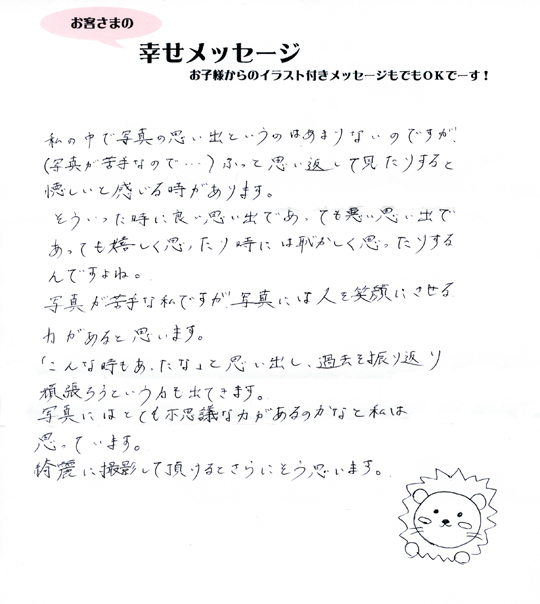 お客さまの
幸せメッセージ
お子様からのイラスト付きメッセージもでもOKでーす！
私の中で写真の思い出というのはあまりないのですが
(写真が苦手なので…)ふっと思い返して見たりすると
懐しいと感じる時があります。
そういった時に良い思い出であっても悪い思い出で
あっても嬉しく思ったり時には恥かしく思ったりする
んですよね。
写真が苦手な私ですが写真には人を笑顔にさせる
力があると思います。
「こんな時もあったな」と思い出し、過去を振り返り
頑張ろうという力も出てきます。
写真にはとても不思議な力があるのかなと私は
思っています。
綺麗に撮影して頂けるとさらにそう思います。